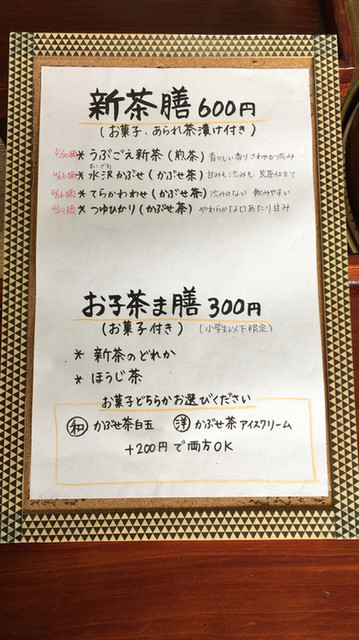 新茶膳 600円
(お菓子、あられ茶漬け付き)
* うぶごえ新茶 (煎茶) 青々しい香り さわやか渋み
あいざわ
* 水沢かぶせ (かぶせ茶) 甘みも渋みも
* てらかわわせ (かぶせ茶) 渋みのない 飲みやすい
* つゆひかり (かぶせ茶) やわらかな口あたり 甘み
お子茶ま膳 300円
(お菓子付き) (小学生以下限定)
* 新茶のどれか
* ほうじ茶
お菓子どちらかお選びください
和 かぶせ茶白玉 洋 かぶせ茶アイスクリーム
+200円で両方OK